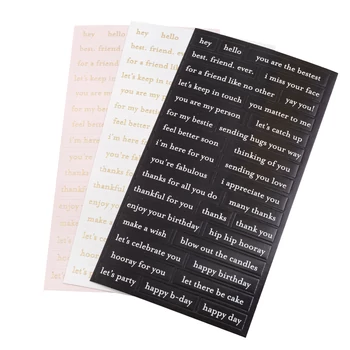 hey hello
best. friend. ever.
for a friend
let's keep in
you are my
for my bestie
feel better
i'm here
you're
thanks
thankful
enjoy
make a
let's
hooray
let's
hey hello
best. friend. ever.
for a friend
let's keep in
you are my
for my bestie
feel better
i'm here for
you're fabulous
thanks for
thankful for
enjoy your
make a wish
let's celebrate
hooray for
let's party
hey hello you are the bestest
best. friend. ever. i miss your face
for a friend like no other yay you!
let's keep in touch you matter to me
you are my person let's catch up
for my bestie sending hugs your way
feel better soon thinking of you
i'm here for you sending you love
you're fabulous i appreciate you
thanks for all you do many thanks
thankful for you thanks thank you
enjoy your birthday hip hip hooray
make a wish blow out the candles
let's celebrate you happy birthday
hooray for you let there be cake
let's party happy b-day happy day